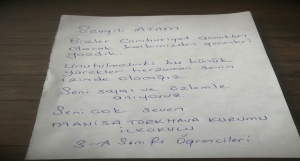 Sevgili ATAM
Bizler Cumhuriyet çocukları
olarak kalbimizden geçenleri
yazdık.
Unutulmadınki bu küçük
yürekler herzaman senin
izinde olacağız
Seni saygı ve özlemle
anıyoruz
Seni Çok Seven
MANİSA TÜRK HAVA KURUMU
İLKOKULU
Öğrencileri